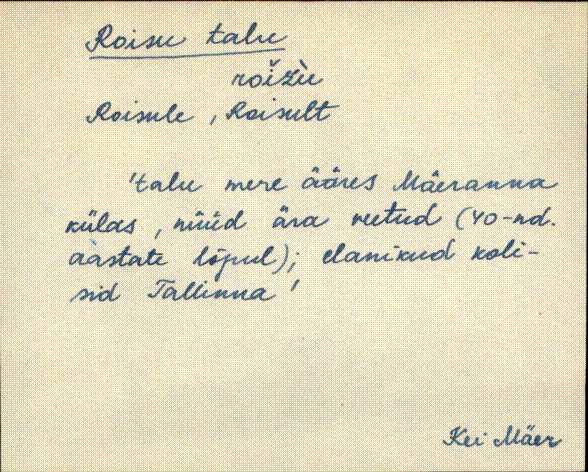 Roisu talu
roižù
Roisule, Roisult
'talu mere ääres Mäeranna
külas, nüüd ära veetud (40-nd.
aastate lõpul); elanikud koli-
sid Tallinna'
Kei Mäer